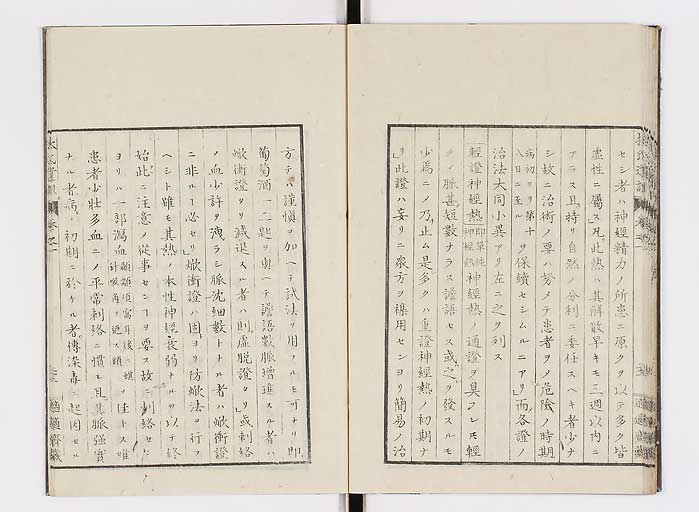 セシ者ハ神經精力ノ所患ニ原クヲ以テ多ク皆
虚性ニ屬ス凡此熱ハ其解散早キモ三週以内ニ
アラス且特リ自然ノ分利ニ委任スヘキ者少ナ
シ故ニ治術ノ要ハ努メテ患者ヲノ危險ノ時期
病初ヨリ第十八日ニ至ルヲ保續セシムルニアリ而各證ノ
治法大同小異アリ左ニ之ヲ列ス
輕證神經熱即單純神經熱神經熱ノ通證ヲ具フレモ輕
クノ脈甚短數ナラス譫語セス或之ヲ發スルモ
少焉ニノ乃止ム是多クハ重證神經熱ノ初期ナ
リ此證ハ妄リニ衆方ヲ襍用センヨリ簡易ノ治
方テハ謹愼ヲ加ヘテ試法ヲ用ノルモ可ナリ即
葡萄酒一二匙ヲ與ヘテ譫語數脈增進スル者ハ
焮衝證タリ減退スル者ハ則虚脱證タリ或刺絡
ノ血少許ヲ洩ラシ脈沈細數トナル者ハ焮衝證
ニ非ル必セリ焮衝證ハ固ヨリ防焮法ヲ行フ
ヘシト雖モ其熱ノ本性神經衰弱ナルヲ以テ終
始此ニ注意ノ從事センヿヲ要ス故ニ刺絡セ
ヨリハ一部瀉血
患者少壯多血ニノ平常刺絡ニ慣レ且其脈強實
ナル者病ノ初期ニ於ケル者傳染毒ニ起因セル